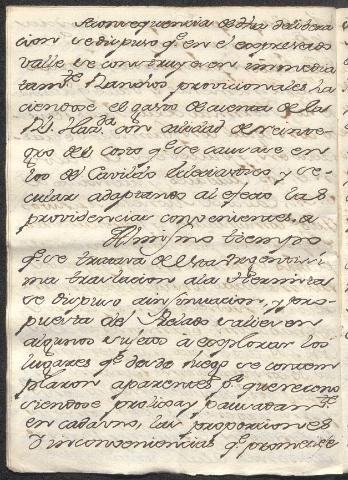 A consequencia de dha delibera
cion se dispuso qe. en el expresado
valle se construyesen immedia
tamte. Ranchos provicionales ha
ciendose el gasto de cuenta de la
Rl. Hazda. con calidad de reinte-
gro del costo qe. se causare en
los de Cavildos Eclesiastico, y se-
cular adaptando al efecto las
providencias convenientes. a
Al mismo tiempo
qe. se trataba de esta
ma traslacion a la Hermita
se dispuso a insinuacion, y pro-
puesta del Prelado saliesen
algunos sujetos a explorar los
lugares qe. desde luego se contem
plaron aparentes pa. que recono
siendose prolixa y pausadamte.
en cada uno, las proporciones
o inconveniencias qe. promete